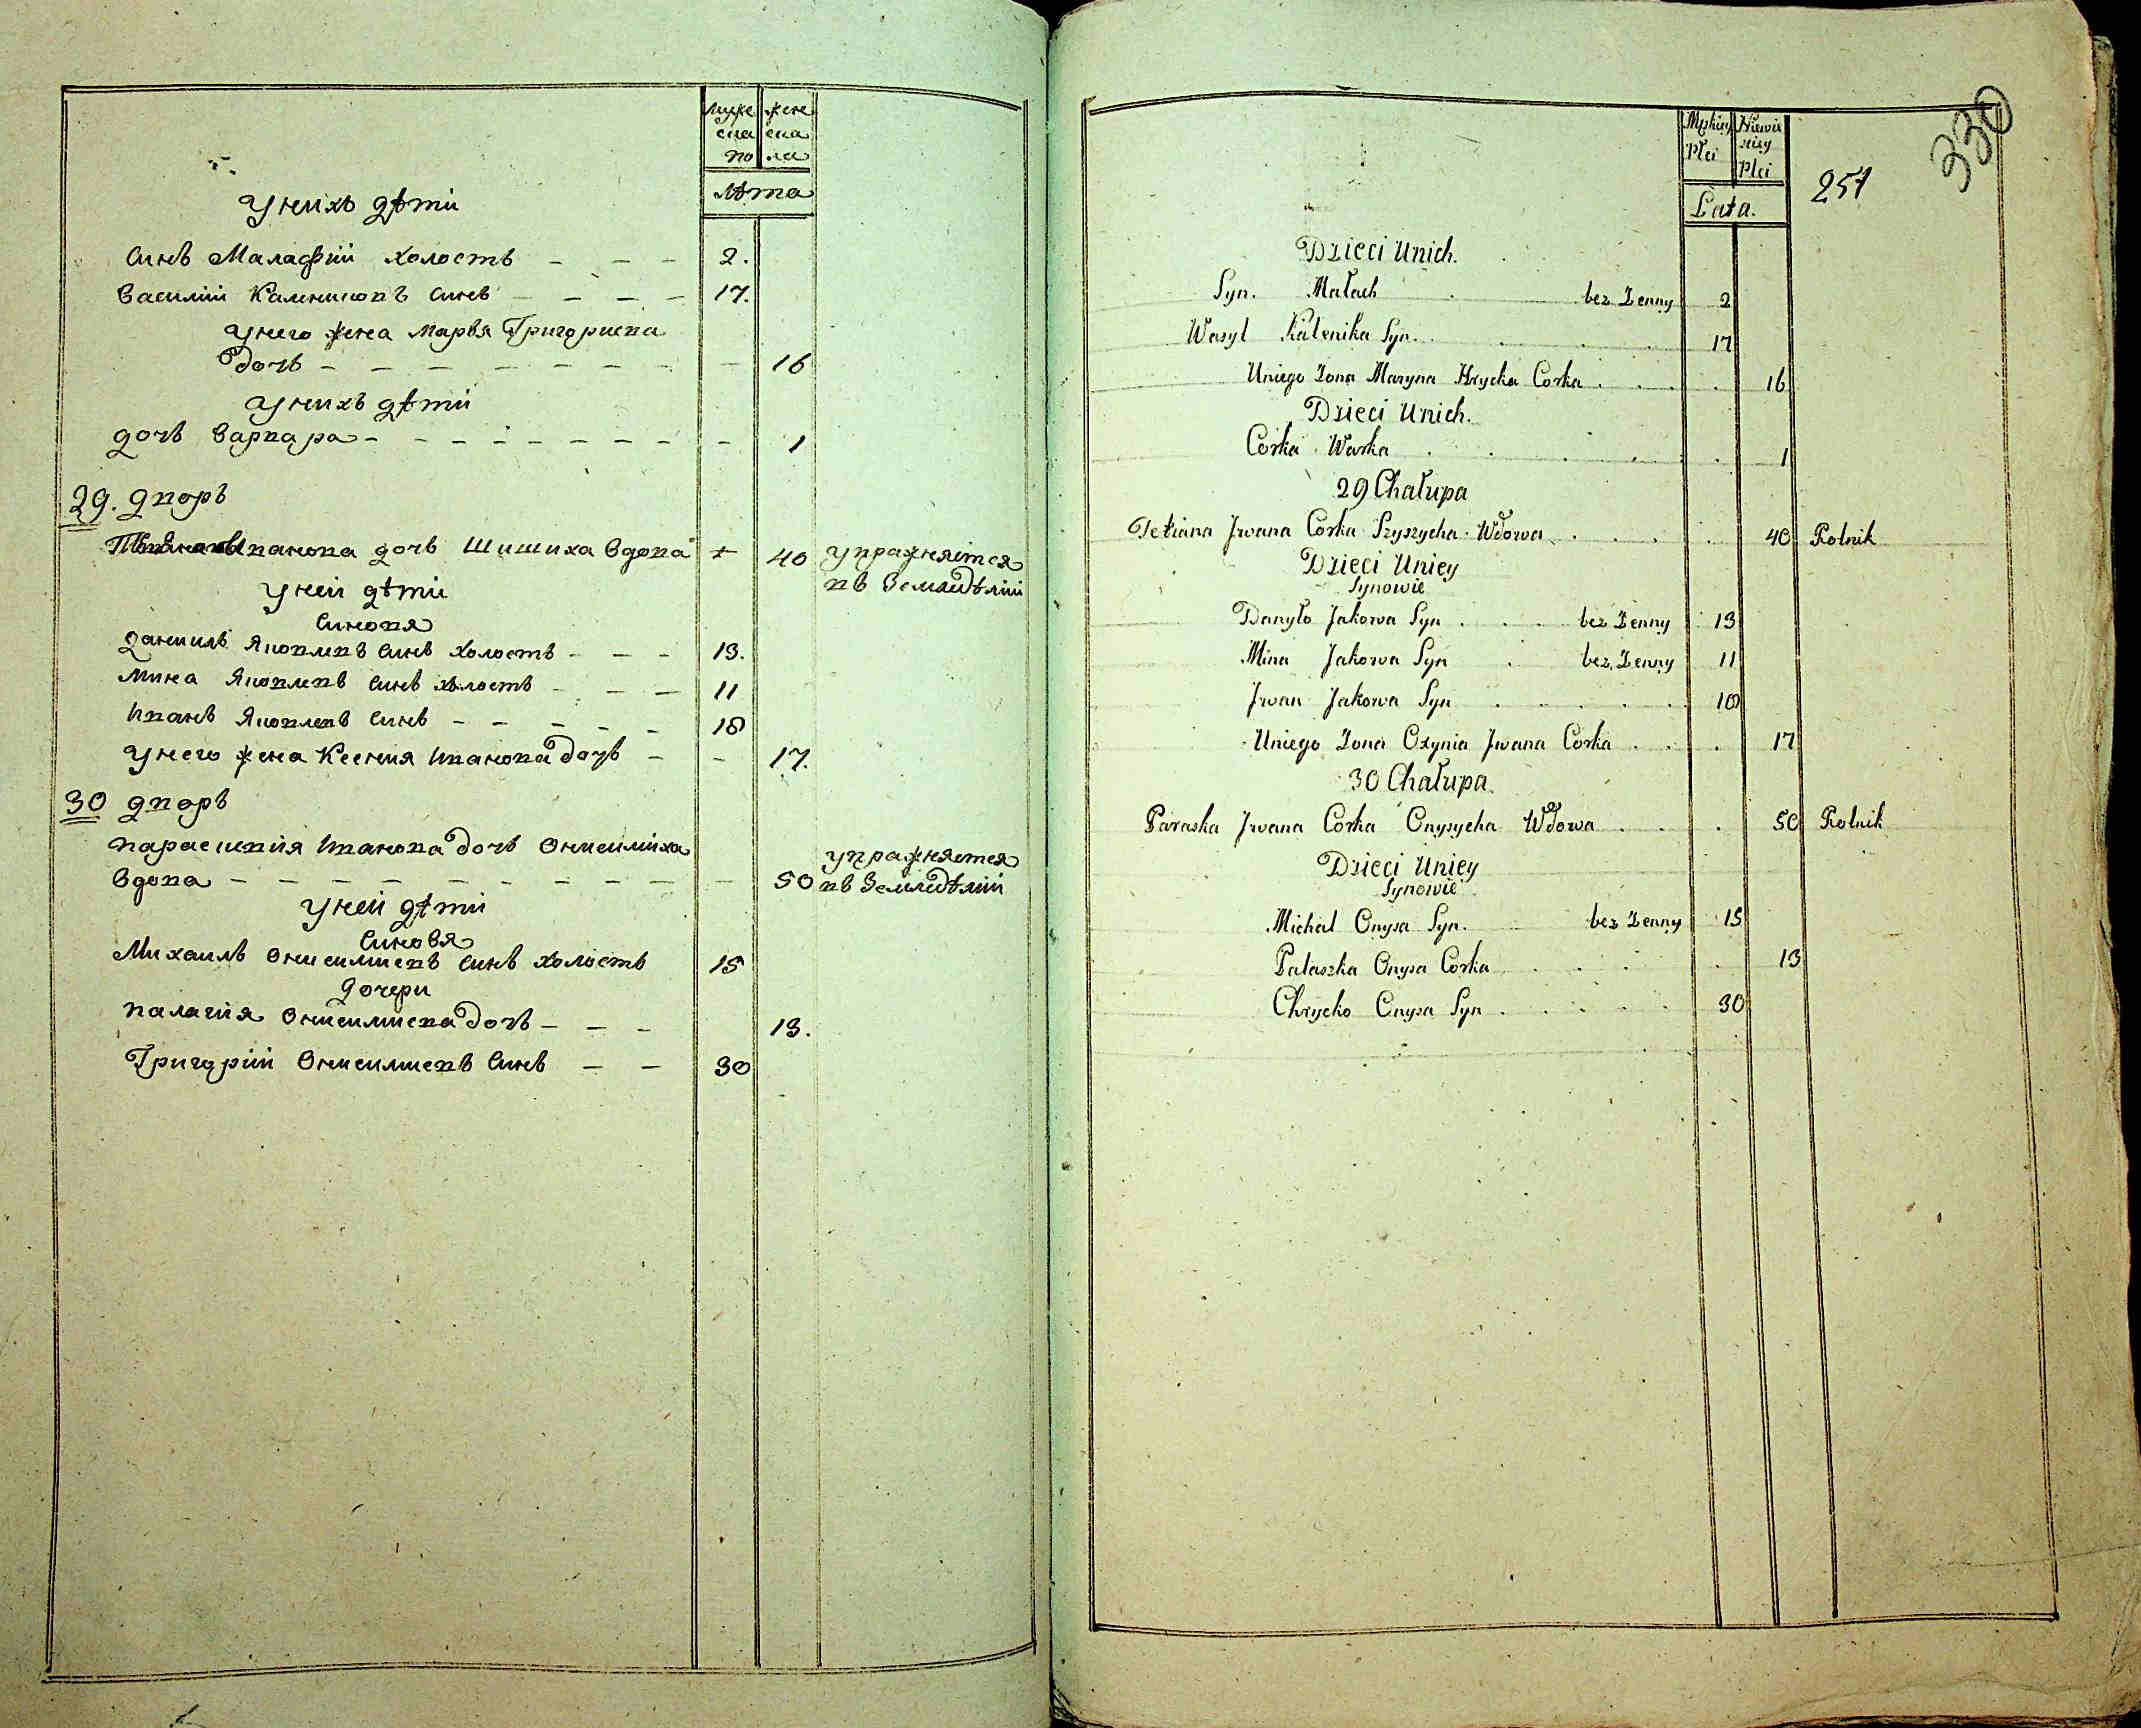 муже жене
ска ска
по ла
Лѣта
У нихъ дѣти
Синъ Малафiй холостъ 2.
Василiй Калениковъ Синъ 17.
У него жена Марья Григориева
дочь 16
У нихъ дѣти
дочь Варвара 1
29. дворъ
Ивановна дочь Шишиха Вдова 40 упражняется
въ Земледѣлiи
У ней дѣти
Синовя
Данилъ Яковлевъ Синъ холостъ 13.
Мина Яковлевъ Синъ холостъ 11
Иванъ Яковлевъ Синъ 18
У него жена Ксения Иванова дочь 17.
30 дворъ
Параскивiя Иванова дочь Онисимиха
Вдова 50 упражняется
въ Земледѣлiи
У ней дѣти
Синовя
Михаилъ Онисимиевъ Синъ холостъ 15
Дочери
Палагiя Онисимиева дочь 13.
Григорiй Онисимиевъ Синъ 30
330
251
Męzkiey Niewie
sciey
Płci Płci
Lata.
Dzieci Unich.
Syn. Małach bez Zenny 2
Wasyl Kalenika Syn. 17
Uniego Zona Maryna Hrycka Corka 16
Dzieci Unich.
Corka Warka 1
29 Chałupa
Tetiana Jwana Corka Szyszycha Wdowa 40 Rolnik
Dzieci Uniey
Synowie
Danyło Jakowa Syn bez Zenny 13
Mina Jakowa Syn bez Zenny 11
Jwan Jakowa Syn 18
Uniego Zona Oxynia Jwana Corka 17
30 Chałupa.
Paraska Jwana Corka Onysycha Wdowa 50 Rolnik
Dzieci Uniey
Synowie
Michal Onysa Syn. bez Zenny 15
Palaszka Onysa Corka 13
Chrycko Onysa Syn 30